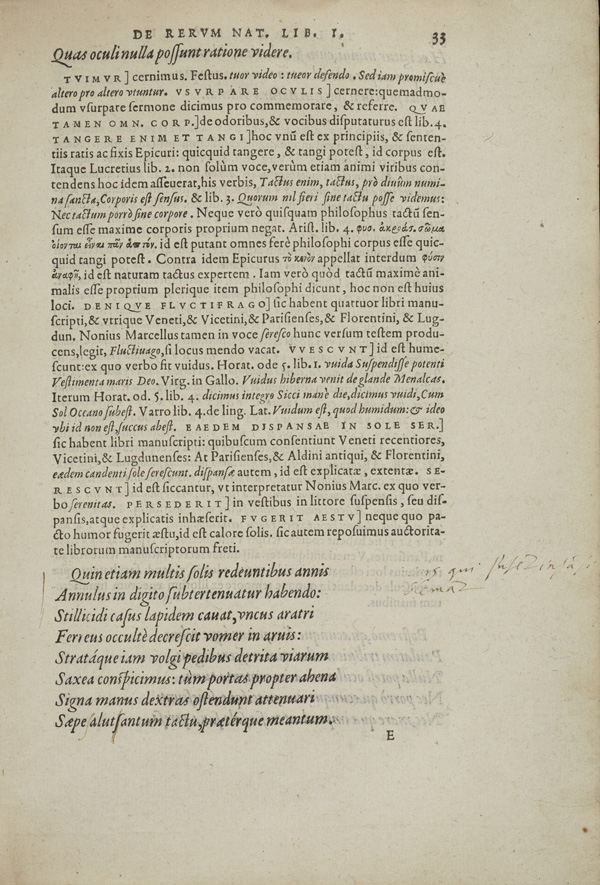 DE RERVM NAT. LIB. I. 33
Quas oculi nulla possunt ratione videre.
TVIMVR] cernimus. Festus. tuor video: tueor defendo. Sed iam promiscuè
altero pro altero vtuntur. VSVRPARE OCVLIS] cernere: quemadmo-
dum vsurpare sermone dicimus pro commemorare, & referre. QVAE
TAMEN OMN. CORP.] de odoribus, & vocibus disputaturus est lib. 4.
TANGERE ENIM ET TANGI] hoc vnũ est ex principiis, & senten-
tiis ratis ac fixis Epicuri: quicquid tangere, & tangi potest, id corpus est.
Itaque Lucretius lib. 2. non solùm voce, verùm etiam animi viribus con-
tendens hoc idem asseuerat, his verbis, Tactus enim, tactus, prò diuûm numi-
na sancta, Corporis est sensus. & lib. 3. Quorum nil fieri sine tactu posse videmus:
Nec tactum porrò sine corpore. Neque verò quisquam philosophus tactũ sen-
sum esse maxime corporis proprium negat. Arist. lib. 4. φυσ. ἀκροάσ. σῶμα
οἴονται εἶναι πᾶν ἁπτόν. id est putant omnes ferè philosophi corpus esse quic-
quid tangi potest. Contra idem Epicurus τὸ κενὸν appellat interdum φύσιν
ἀναφῆ, id est naturam tactus expertem. Iam verò quòd tactũ maximè ani-
malis esse proprium plerique item philosophi dicunt, hoc non est huius
loci. DENIQVE FLVCTIFRAGO] sic habent quattuor libri manu-
scripti, & vtrique Veneti, & Vicetini, & Parisienses, & Florentini, & Lug-
dun. Nonius Marcellus tamen in voce seresco hunc versum testem produ-
cens, legit, Fluctiuago, si locus mendo vacat. VVESCVNT] id est hume-
scunt: ex quo verbo fit vuidus. Horat. ode 5. lib. 1. vuida Suspendisse potenti
Vestimenta maris Deo. Virg. in Gallo. Vuidus hiberna venit de glande Menalcas.
Iterum Horat. od. 5. lib. 4. dicimus integro Sicci mane die, dicimus vuidi, Cum
Sol Oceano subest. Varro lib. 4. de ling. Lat. Vuidum est, quod humidum: & ideo
vbi id non est, succus abest. EAEDEM DISPANSAE IN SOLE SER.]
sic habent libri manuscripti: quibuscum consentiunt Veneti recentiores,
Vicetini, & Lugdunenses: At Parisienses, & Aldini antiqui, & Florentini,
eædem candenti sole serescunt. dispansæ autem, id est explicatæ, extentæ. SE-
RESCVNT] id est siccantur, vt interpretatur Nonius Marc. ex quo ver-
bo serenitas. PERSEDERIT] in vestibus in littore suspensis, seu dis-
pansis, atque explicatis inhæserit. FVGERIT AESTV] neque quo pa-
cto humor fugerit æstu, id est calore solis. sic autem reposuimus auctorita-
te librorum manuscriptorum freti.
Quin etiam multis solis redeuntibus annis
Annulus in digito subtertenuatur habendo:
Stillicidi casus lapidem cauat, vncus aratri
Ferreus occultè decrescit vomer in aruis:
Stratáque iam volgi pedibus detrita viarum
Saxea conspicimus: tùm portas propter ahena
Signa manus dextras ostendunt attenuari
Sæpe alutsantum tactu, prætérque meantum.
E
qui